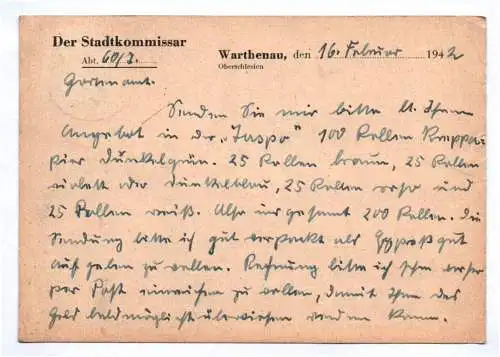 Der Stadtkommissar
Abt. 60/J.
Warthenau, den 16. Februar 1942
Oberschlesien
Gartenamt.
Senden Sie mir bitte lt. Ihrem
Angebot in der „Jaspo" 100 Rollen Kreppa-
pier dunkelgrün. 25 Rollen braun, 25 Rollen
violett oder dunkelblau, 25 Rollen rosa und
25 Rollen weiß. Also insgesamt 200 Rollen. Die
Sendung bitte ich gut verpackt als Expreßgut
aufgeben zu wollen. Rechnung bitte ich schon vorher
per Post einreichen zu wollen, damit Ihnen das
Geld baldmöglichst überwiesen werden kann.